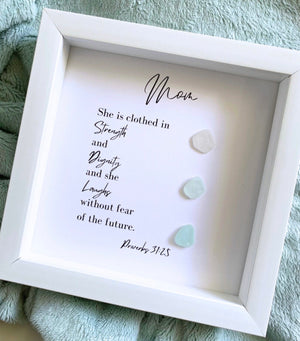 Mom
She is clothed in
Strength
and
Dignity
and she
Laughs
without fear
of the future.
Proverbs 31:25